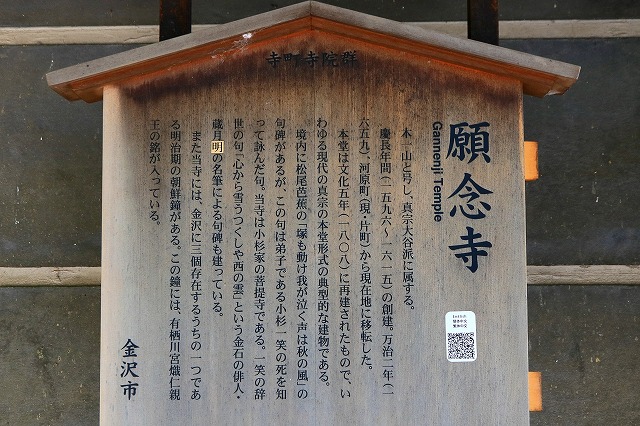 寺町寺院群
願念寺
Gannenji Temple
本一山と号し、真宗大谷派に属する。
慶長年間（一五九六〜一六一五）の創建。万治二年（一
六五九）、河原町（現・片町）から現在地に移転した。
本堂は文化五年（一八〇八）に再建されたもので、い
わゆる現代の真宗の本堂形式の典型的な建物である。
境内に松尾芭蕉の「塚も動け我が泣く声は秋の風」の
句碑があるが、この句は弟子である小杉一笑の死を知
って詠んだ句。当寺は小杉家の菩提寺である。一笑の辞
世の句「心から雪うつくしや西の雲」という金石の俳人・
蔵月明の名筆による句碑も建っている。
また当寺には、金沢に三個存在するうちの一つであ
る明治期の朝鮮鐘がある。この鐘には、有栖川宮熾仁親
王の銘が入っている。
金沢市